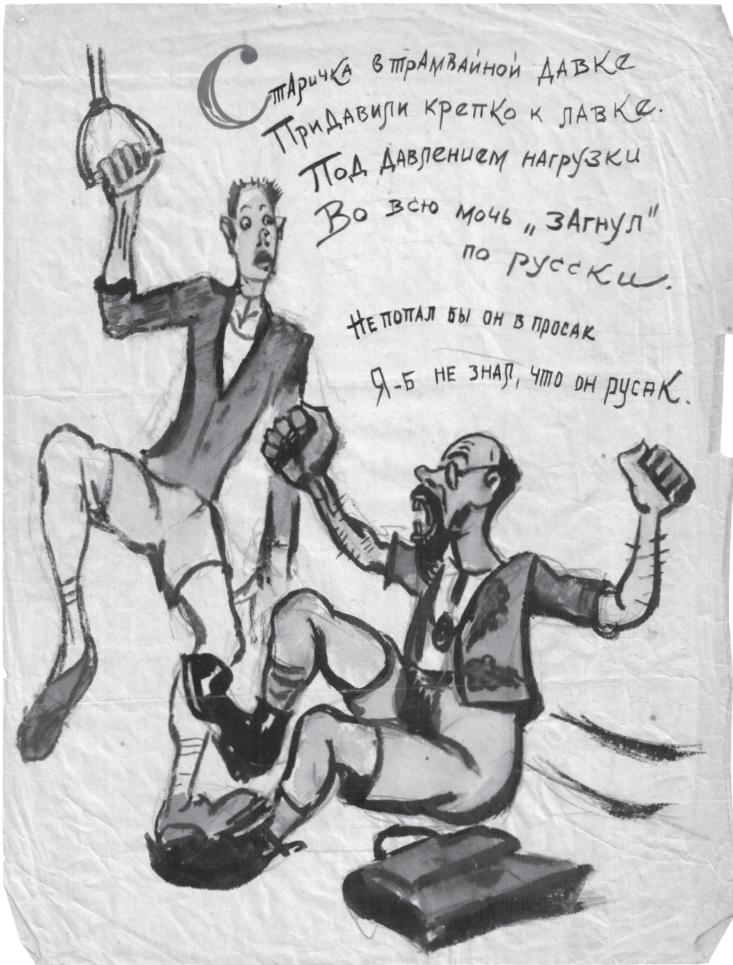 Старичка в трамвайной давке
Придавили крепко к лавке.
Под давлением нагрузки
Во всю мочь „загнул"
по русски.
Не попал бы он в просак
Я-б не знал, что он русак.